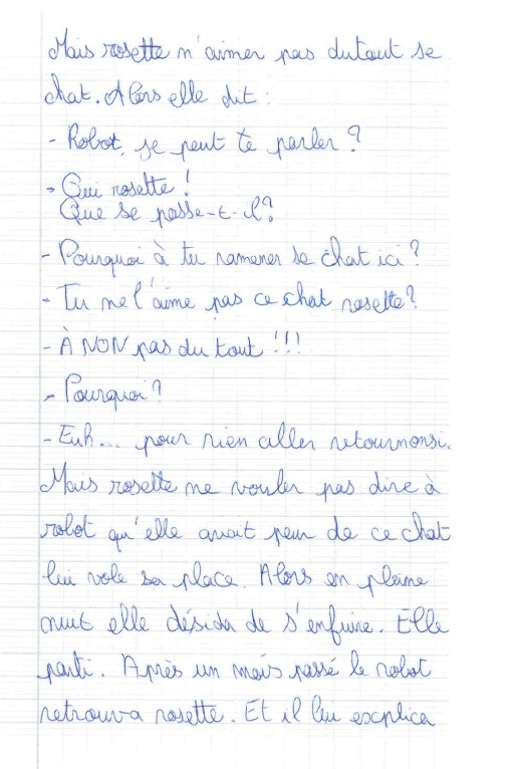 Mais rosette n'aimer pas dutout se
chat. Alors elle dit :
- Robot, je peut te parler ?
- Oui rosette !
Que se passe-t-il?
- Pourquoi à tu ramener se chat ici ?
- Tu ne l'aime pas ce chat rosette?
- À NON pas du tout !!!
- Pourquoi ?
- Euh... pour rien aller retournonsi.
Mais rosette ne vouler pas dire à
robot qu'elle avait peur de ce chat
lui vole sa place. Alors en pleine
nuit elle désida de s'enfuire. Elle
parti. Après un mois passé le robot
retrouva rosette. Et il lui explica